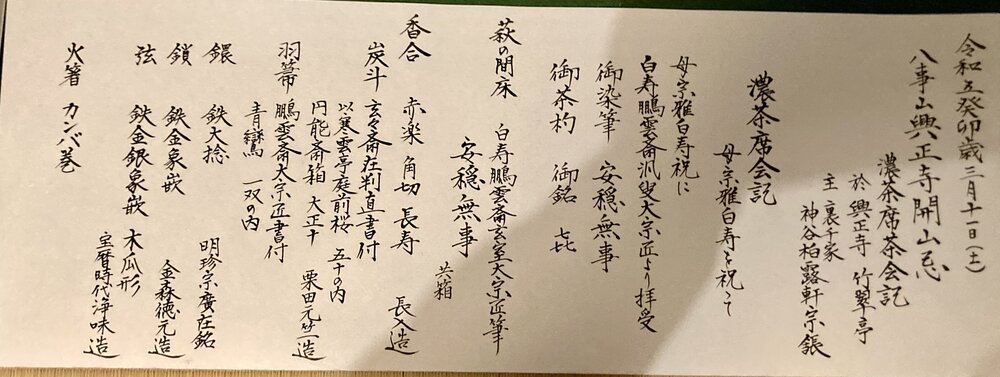 令和五癸卯歳三月十一日(土)
八事山興正寺開山忌
濃茶席茶会記
於 興正寺 竹翠亭
主 裏千家
神谷柏露軒宗
濃茶席会記
母宗雅白寿を祝って
母宗雅白寿祝に
白寿鵬雲斎汎叟大宗匠より拝受
御染筆 安穏無事
御茶杓 御銘 㐂
萩の間床 白寿鵬雲斎玄室大宗匠筆
安穏無事
共箱
香合 赤楽 角切 長寿 長入造
炭斗 玄々斎在判直書付
以寒雲亭庭前桜 五十の内
円能斎箱 大正十 栗田元竺造
羽箒 鵬雲斎大宗匠書付
青鸞 一双の内
鐶 鉄大捻 明珍宗廣在銘
鎖 鉄金象嵌 金森徳元造
弦 鉄金銀象嵌 木瓜形
宝暦時代浄味造
火箸 カンバ巻